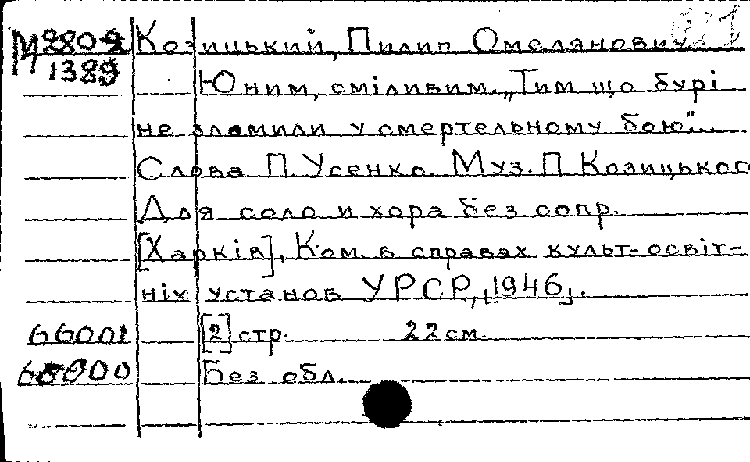 М 2802 Козицький, Пилип Омелянович
1389 Юним, сміливим. „Тим що бурі
не зламили у смертельному бою"...
Слова П. Усенко. Муз. П. Козицького
Для соло и хора без сопр.
[Харків], Ком. в справах культ-освіт-
ніх установ УРСР, [1946].
66001 [2] стр. 22 см.
Без обл.